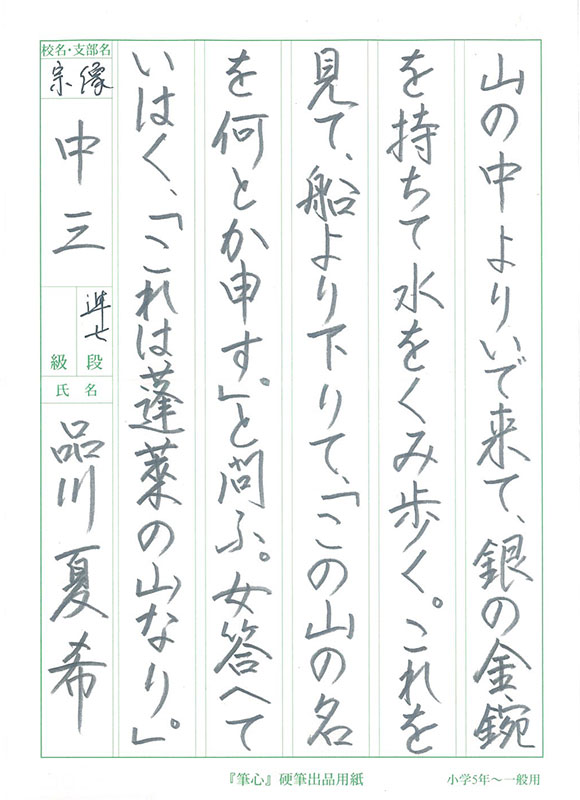 山の中よりいで来て、銀の金鋺
を持ちて水をくみ歩く。これを
見て、船より下りて、「この山の名
を何とか申す。」と問ふ。女答へて
いはく、「これは蓬莱の山なり。」
校名・支部名
宗像
中三
準七
段
級
氏名
品川夏希
『筆心』硬筆出品用紙
小学5年～一般用